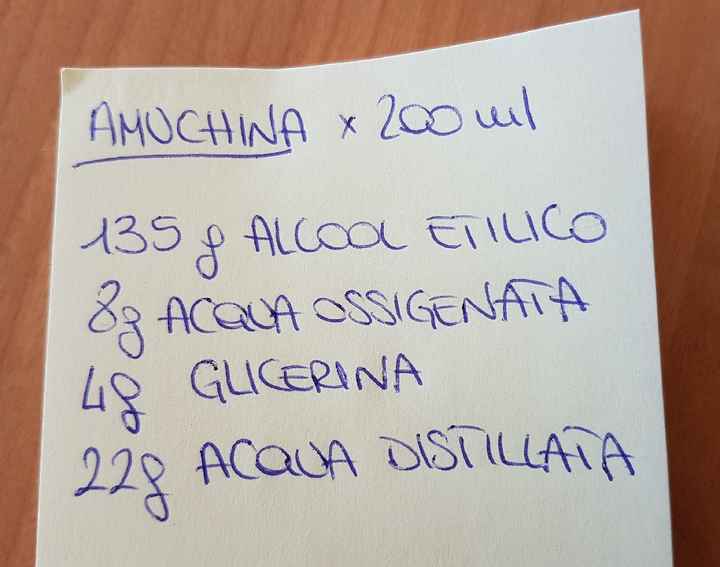 AMUCHINA x 200 ml
135 g ALCOOL ETILICO
8g ACQUA OSSIGENATA
4g GLICERINA
22g ACQUA DISTILLATA